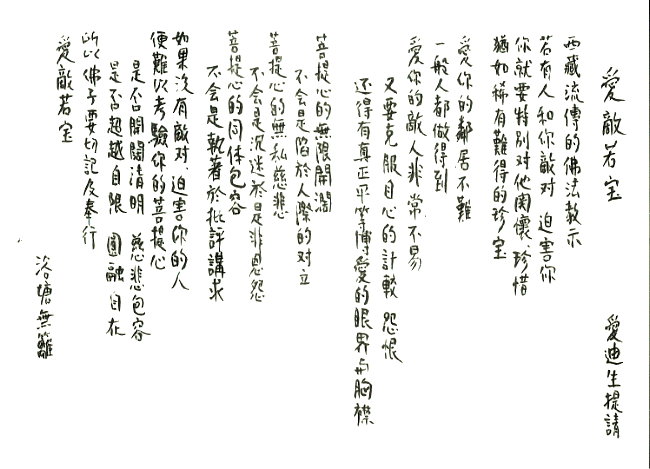 愛敵若宝
愛迪生提請
西藏流傳的佛法教示
若有人和你敵对 迫害你
你就要特別对他関懷、珍惜
猶如稀有難得的珍宝
愛你的鄰居不難
一般人都做得到
愛你的敵人非常不易
又要克服自心的計較 怨恨
还得有真正平等博愛的眼界与胸襟
菩提心的無限開濶
不会是陷於人際的对立
菩提心的無私慈悲
不会是沉迷於是非恩怨
菩提心的同体包容
不会是執著於批評講求
如果沒有敵对、迫害你的人
便難以考驗你的菩提心
是否開闊清明 慈悲包容
是否超越自限 圓融自在
所以佛子要切記及奉行
愛敵若宝
洛塘無籬